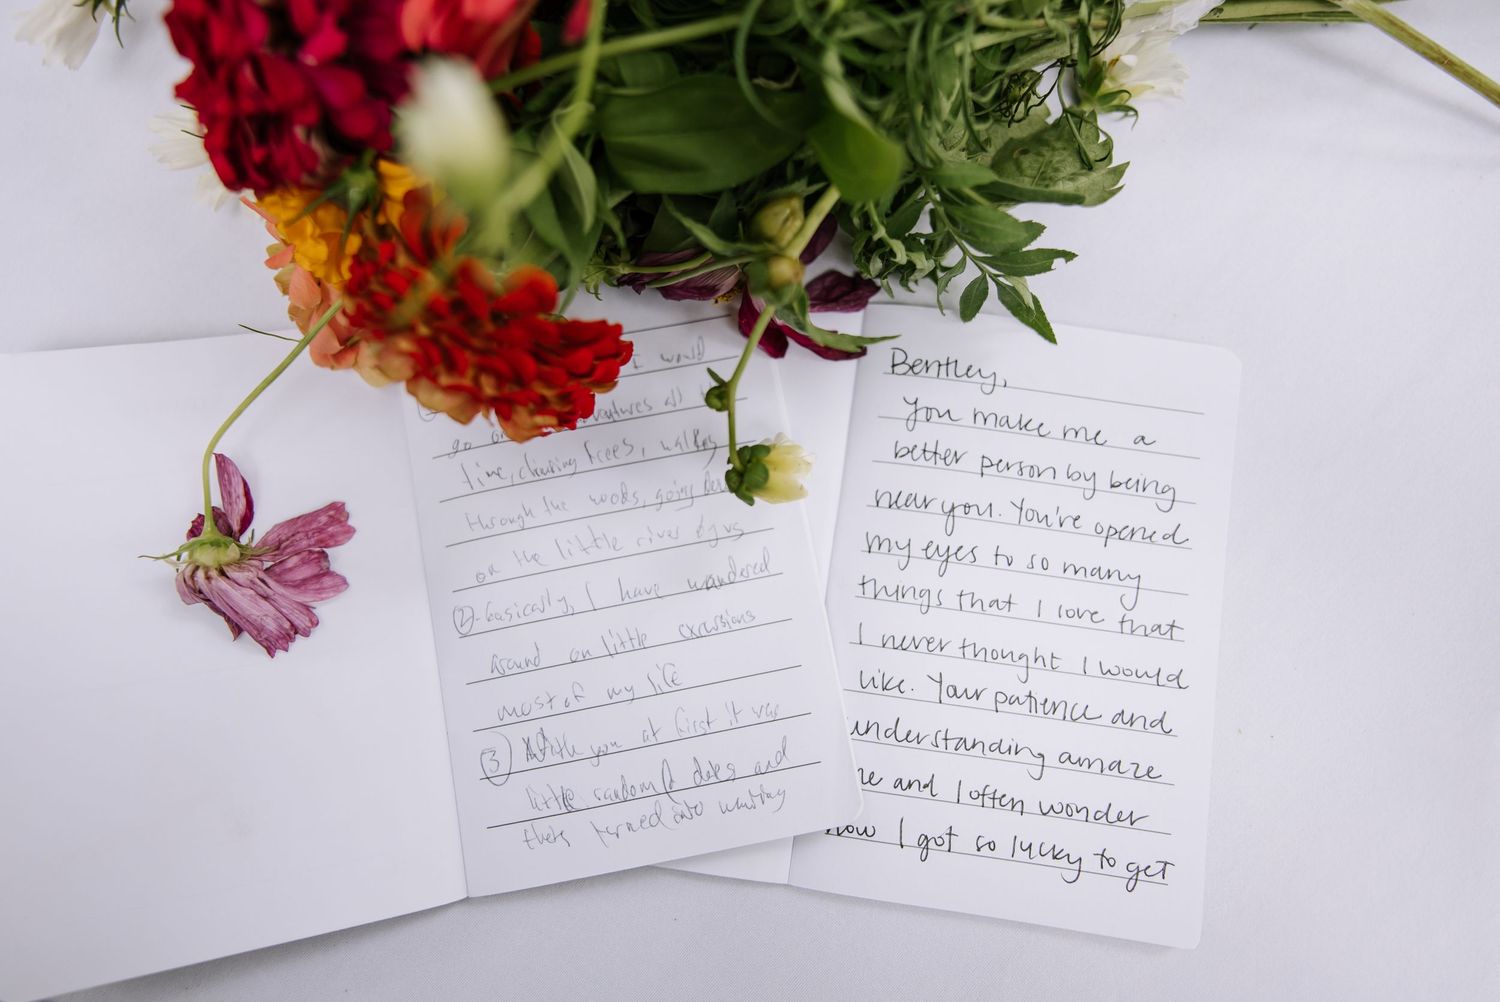 I would
go on adventures all
time, climbing trees, walking
through the woods, going down
on the little river by us
(2)-basically, I have wandered
around on little excursions
most of my life
(3) With you at first it was
little random dates and
turned into wanting
Bentley,
You make me a
better person by being
near you. You're opened
my eyes to so many
things that I love that
I never thought I would
like. Your patience and
understanding amaze
me and I often wonder
how I got so lucky to get